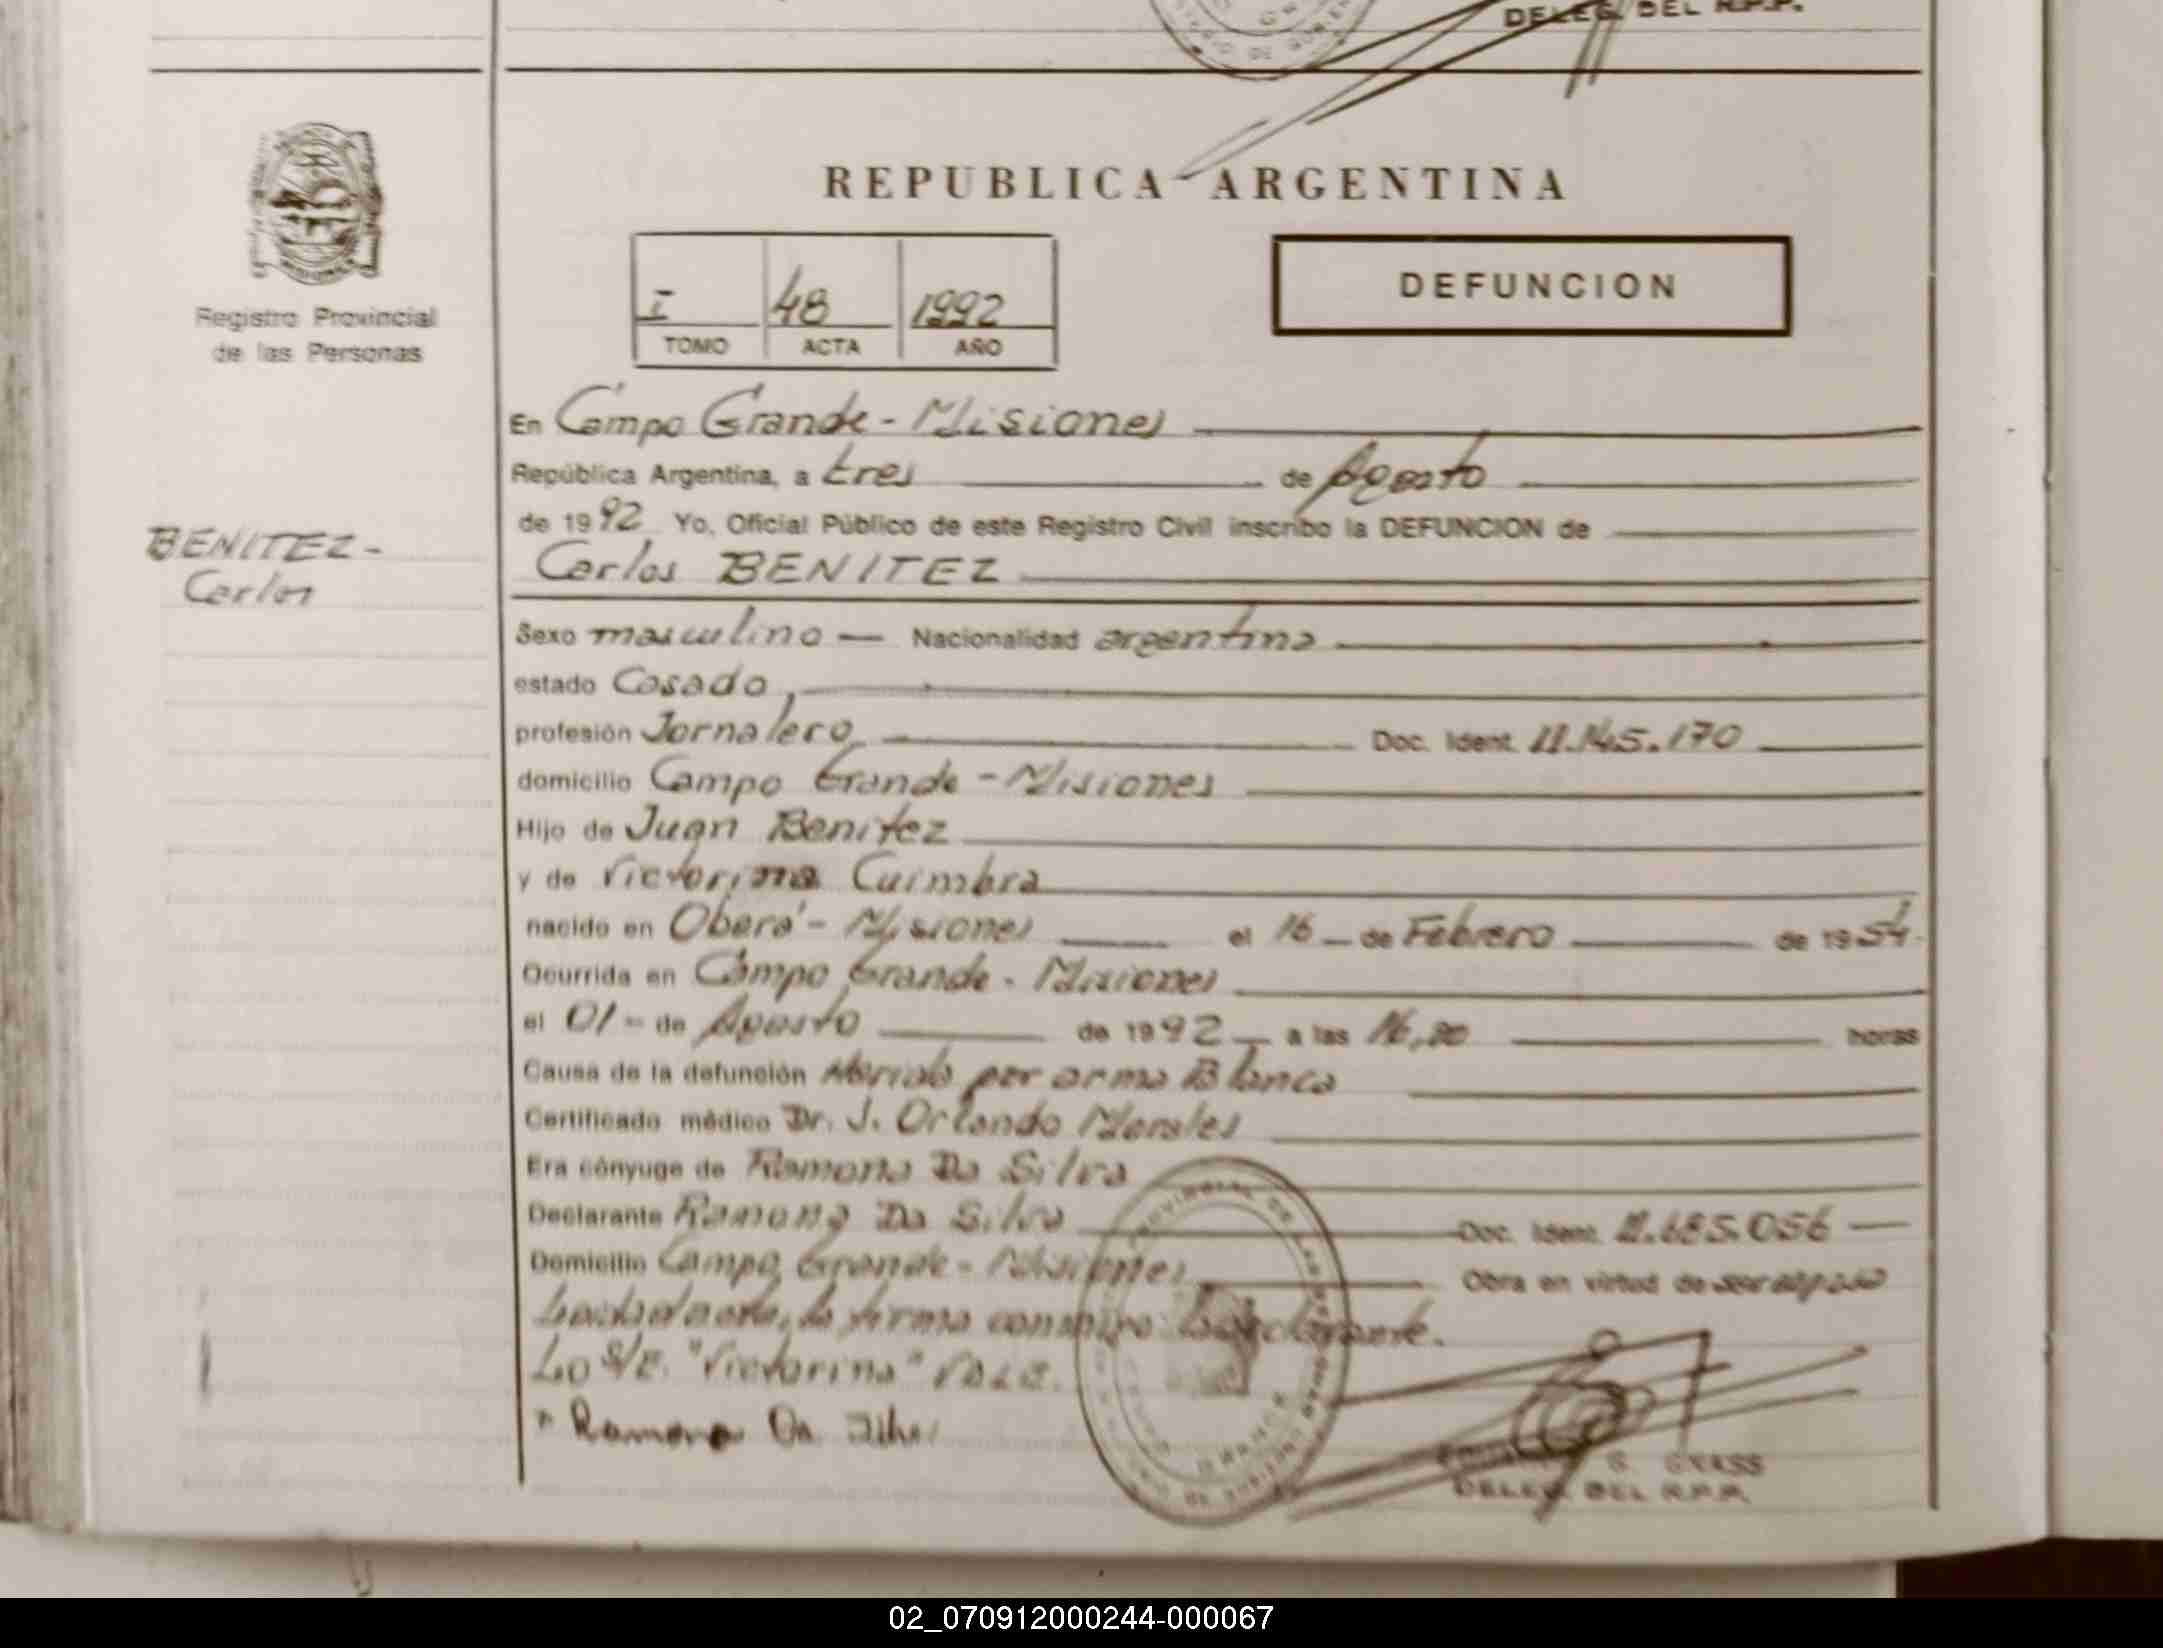 DELEG. DEL R.P.P.
REPUBLICA ARGENTINA
Registro Provincial
de las Personas
I 48 1992
TOMO ACTA AÑO
DEFUNCION
BENITEZ-
Carlos
En Campo Grande - Misiones
República Argentina, a tres de Agosto
de 1992 Yo, Oficial Público de este Registro Civil inscribo la DEFUNCION de
Carlos BENITEZ
Sexo masculino — Nacionalidad argentina
estado Casado,
profesión Jornalero Doc. Ident. 11.145.170
domicilio Campo Grande - Misiones
Hijo de Juan Benitez
y de Victorina Cuimbra
nacido en Oberá - Misiones el 16 de Febrero de 1954
Ocurrida en Campo Grande - Misiones
el 01 - de Agosto de 1992 a las 16, horas
Causa de la defunción por arma Blanca
Certificado médico Dr. J. Orlando Morales
Era cónyuge de Ramona Da Silva
Declarante Ramona Da Silva Doc. Ident. 11.685.056
Domicilio Campo Grande - Misiones Obra en virtud de ser esposo
la firma conmigo la declarante.
Lo S/E. "Victorina" VALE.
Ramona Da Silva
DELEG. DEL R.P.P.
02_070912000244-000067